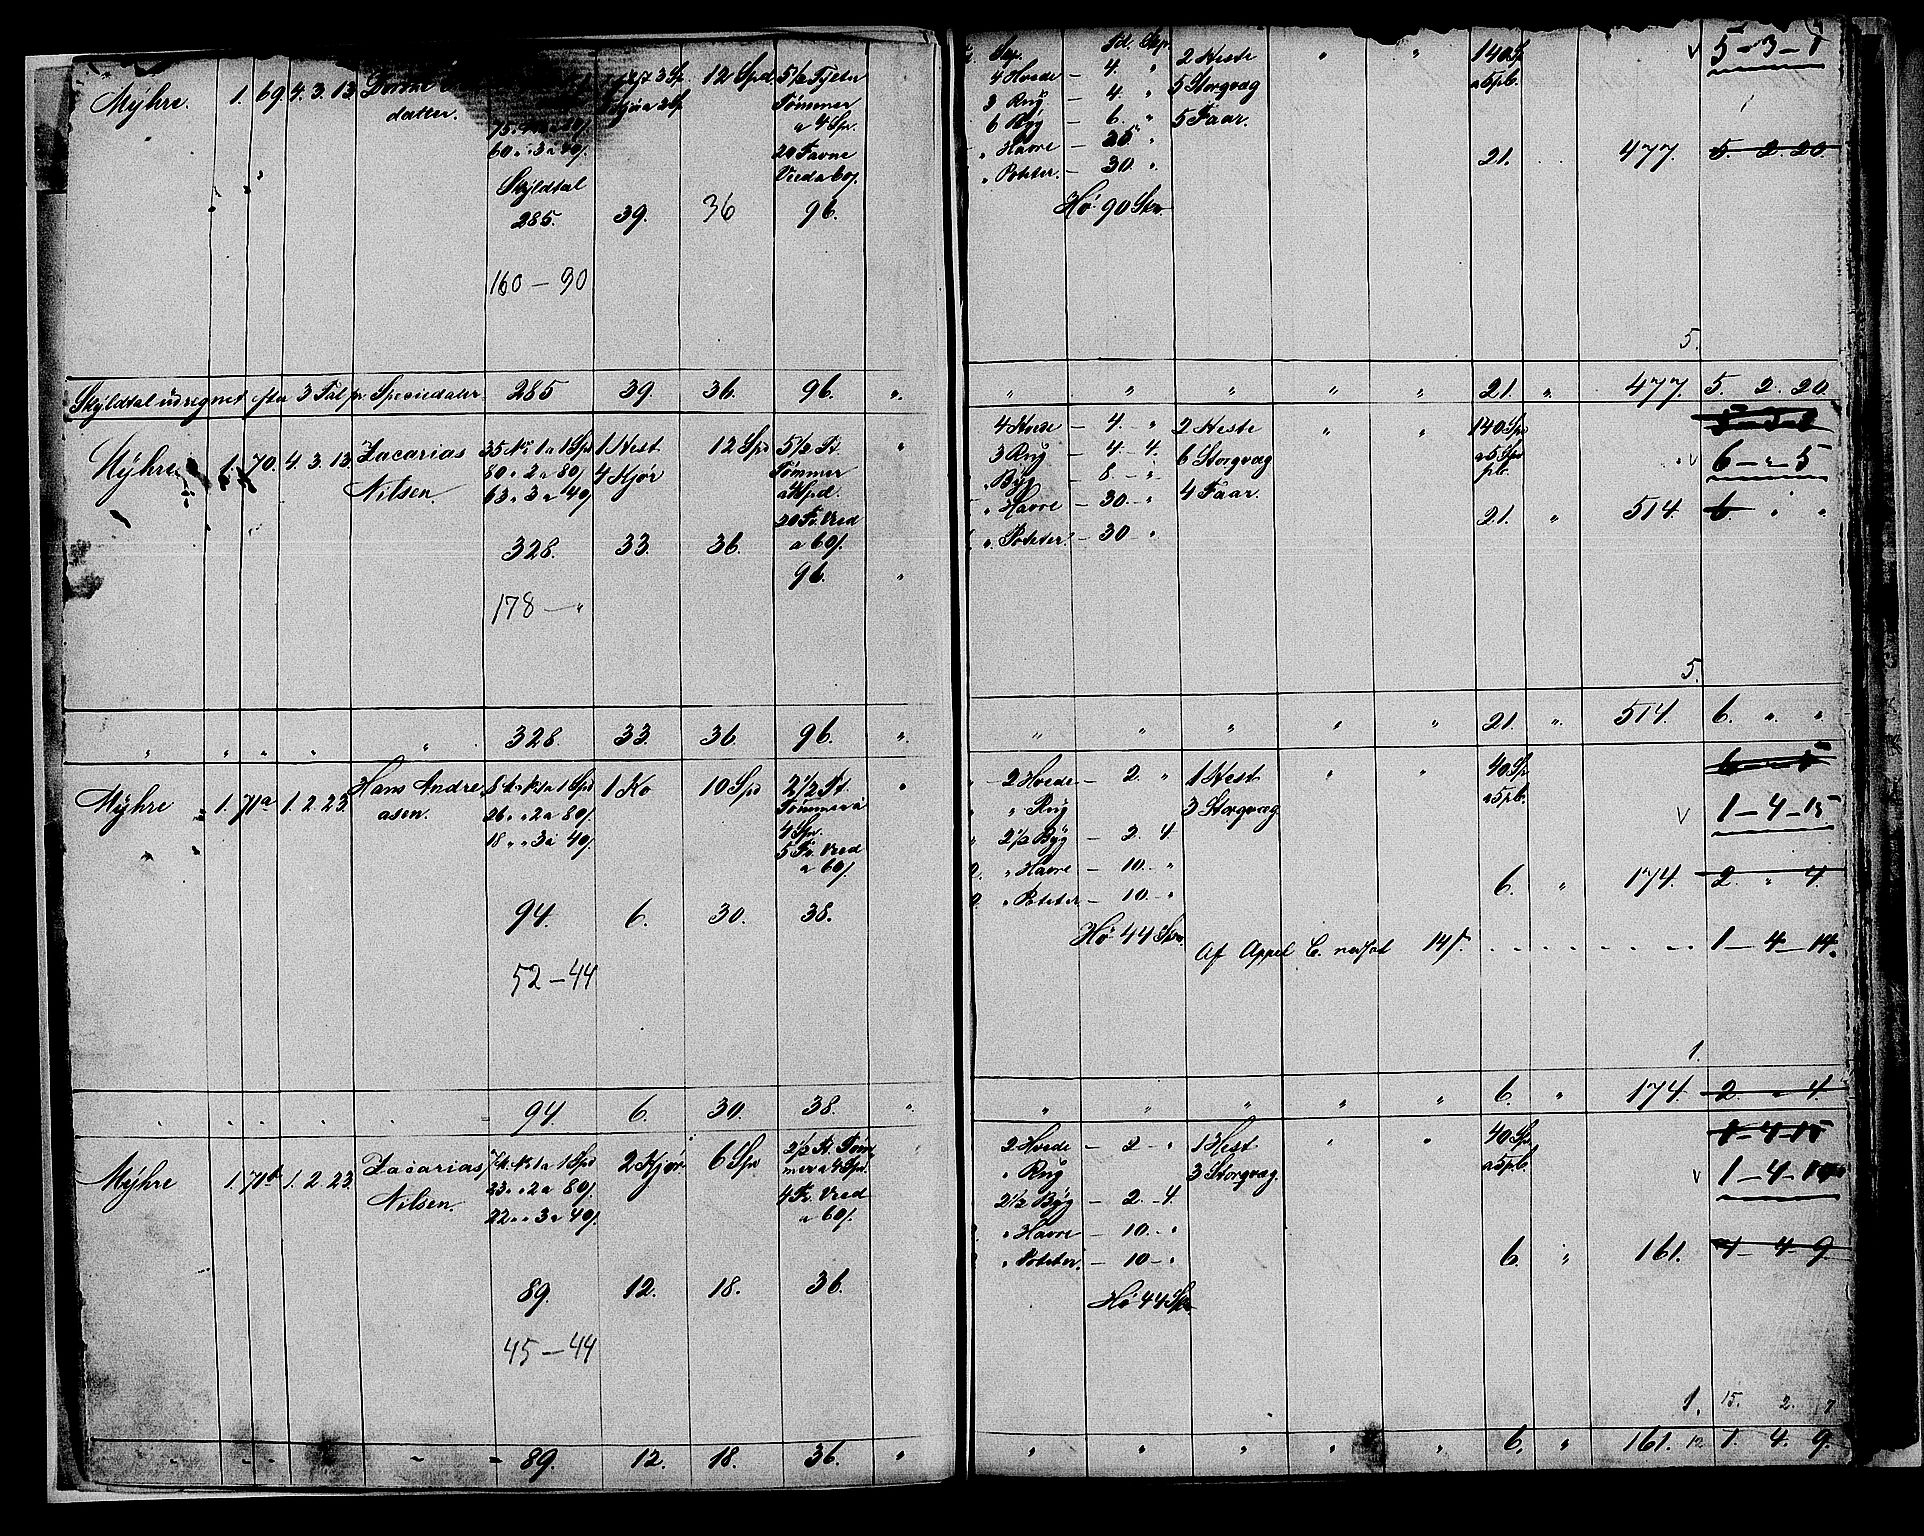 Mÿhre. 1. 69. 4. 3. 13. 12 Spd 5½ Tylter
datter. Tømmer
a 4 Spr.
60 " 3 a 40/. 20 Favne
Skÿldtal Ved a 60/.
285. 39. 36 96.
160 — 90
Skÿldtal udregnet efter 3 Tal pr. Speciedaler 285 39. 36. 96. "
Mÿhre 1. 70. 4. 3. 13. Zacarias 35 No 1 a 1 Spd 1 Hest 12 Spd 5½ Tt. "
Nilsen 80 " 2 a 80/. 4 Kjør Tømmer
63 " 3 a 40/. a 4 Spd.
20 Fv. Ved
328. 33. 36. a 60/.
96. "
178 — "
" " " " " 328. 33. 36. 96. "
Mÿhre 1. 71a 1. 2. 23. Hans Andre 1 Ko 10 Spd 2½ Tt. "
asen. 26 " " 2 a 80/. Tømmer a
18 " " 3 a 40/. 4 Spr.
5 Fv. Ved
a 60/.
94. 6. 30. 38.
52 — 44
94. 6. 30. 38. "
Mÿhre 1. 71b 1. 2. 23. Zacarias 2 Kjør 6 Spd 2½ Tt. Tøm
Nilsen. 23 " " 2 a 80/. mer a 4 Spd.
22 " " 3 a 40/. 4 Fv. Ved
a 60/.
89. 12. 18. 36.
45 — 44
89. 12. 18. 36. "
Td. Skp. 2 Heste " " 140 Sp v 5 — 3 — 1
4 Hvede — 4. " 5 Storqvæg a 5 pb.
3 Rug — 4. " 5 Faar.
6 Bÿg — 6. "
" Havre — 25 " 21. 477. 5. 2. 20.
" Poteter. — 30. "
Hø 90 Skp.
5.
" " " " " 21. " 477. 5. 2. 20.
4 Hvede — 4. — " 2 Heste " " 140 Spd
3 Rug — 4 — 4. 6 Storqvæg a 5 Spd v 6 — " — 5
" Bÿg — 8 — " 4 Faar. pb.
" Havre — 30 — " 21. " 514. 6. " "
" Poteter. — 30 — "
5.
" " " " " 21. " 514. 6. " "
2 Hvede — 2. " 1 Hest " " 40 Sp 6 — " — 5
" Rug 3 Storqvæg a 5 pb. v 1 — 4 — 15
2½ Bÿg — 2. 4.
" Havre — 10. " 6. " 174. 2. " 4.
" Poteter — 10. "
Hø 44 Skp. Af Appel C. nedsat 14/. 1 — 4 — 14.
1.
" " " " " 6. " 174. 2. " 4
2 Hvede — 2 — " 1 Hest " " 40 Sp. 1 — 4 — 15
" Rug 3 Storqvæg a 5 pb. v 1 — 4 — 14
2½ Bÿg — 2. — 4.
" Havre — 10. "
" Poteter. — 10 — " 6. " 161. 1 — 4 — 9.
Hø 44 Skp
1. 15. 2. 17
" " " " " 6. " 161. 12 1. 4. 9.